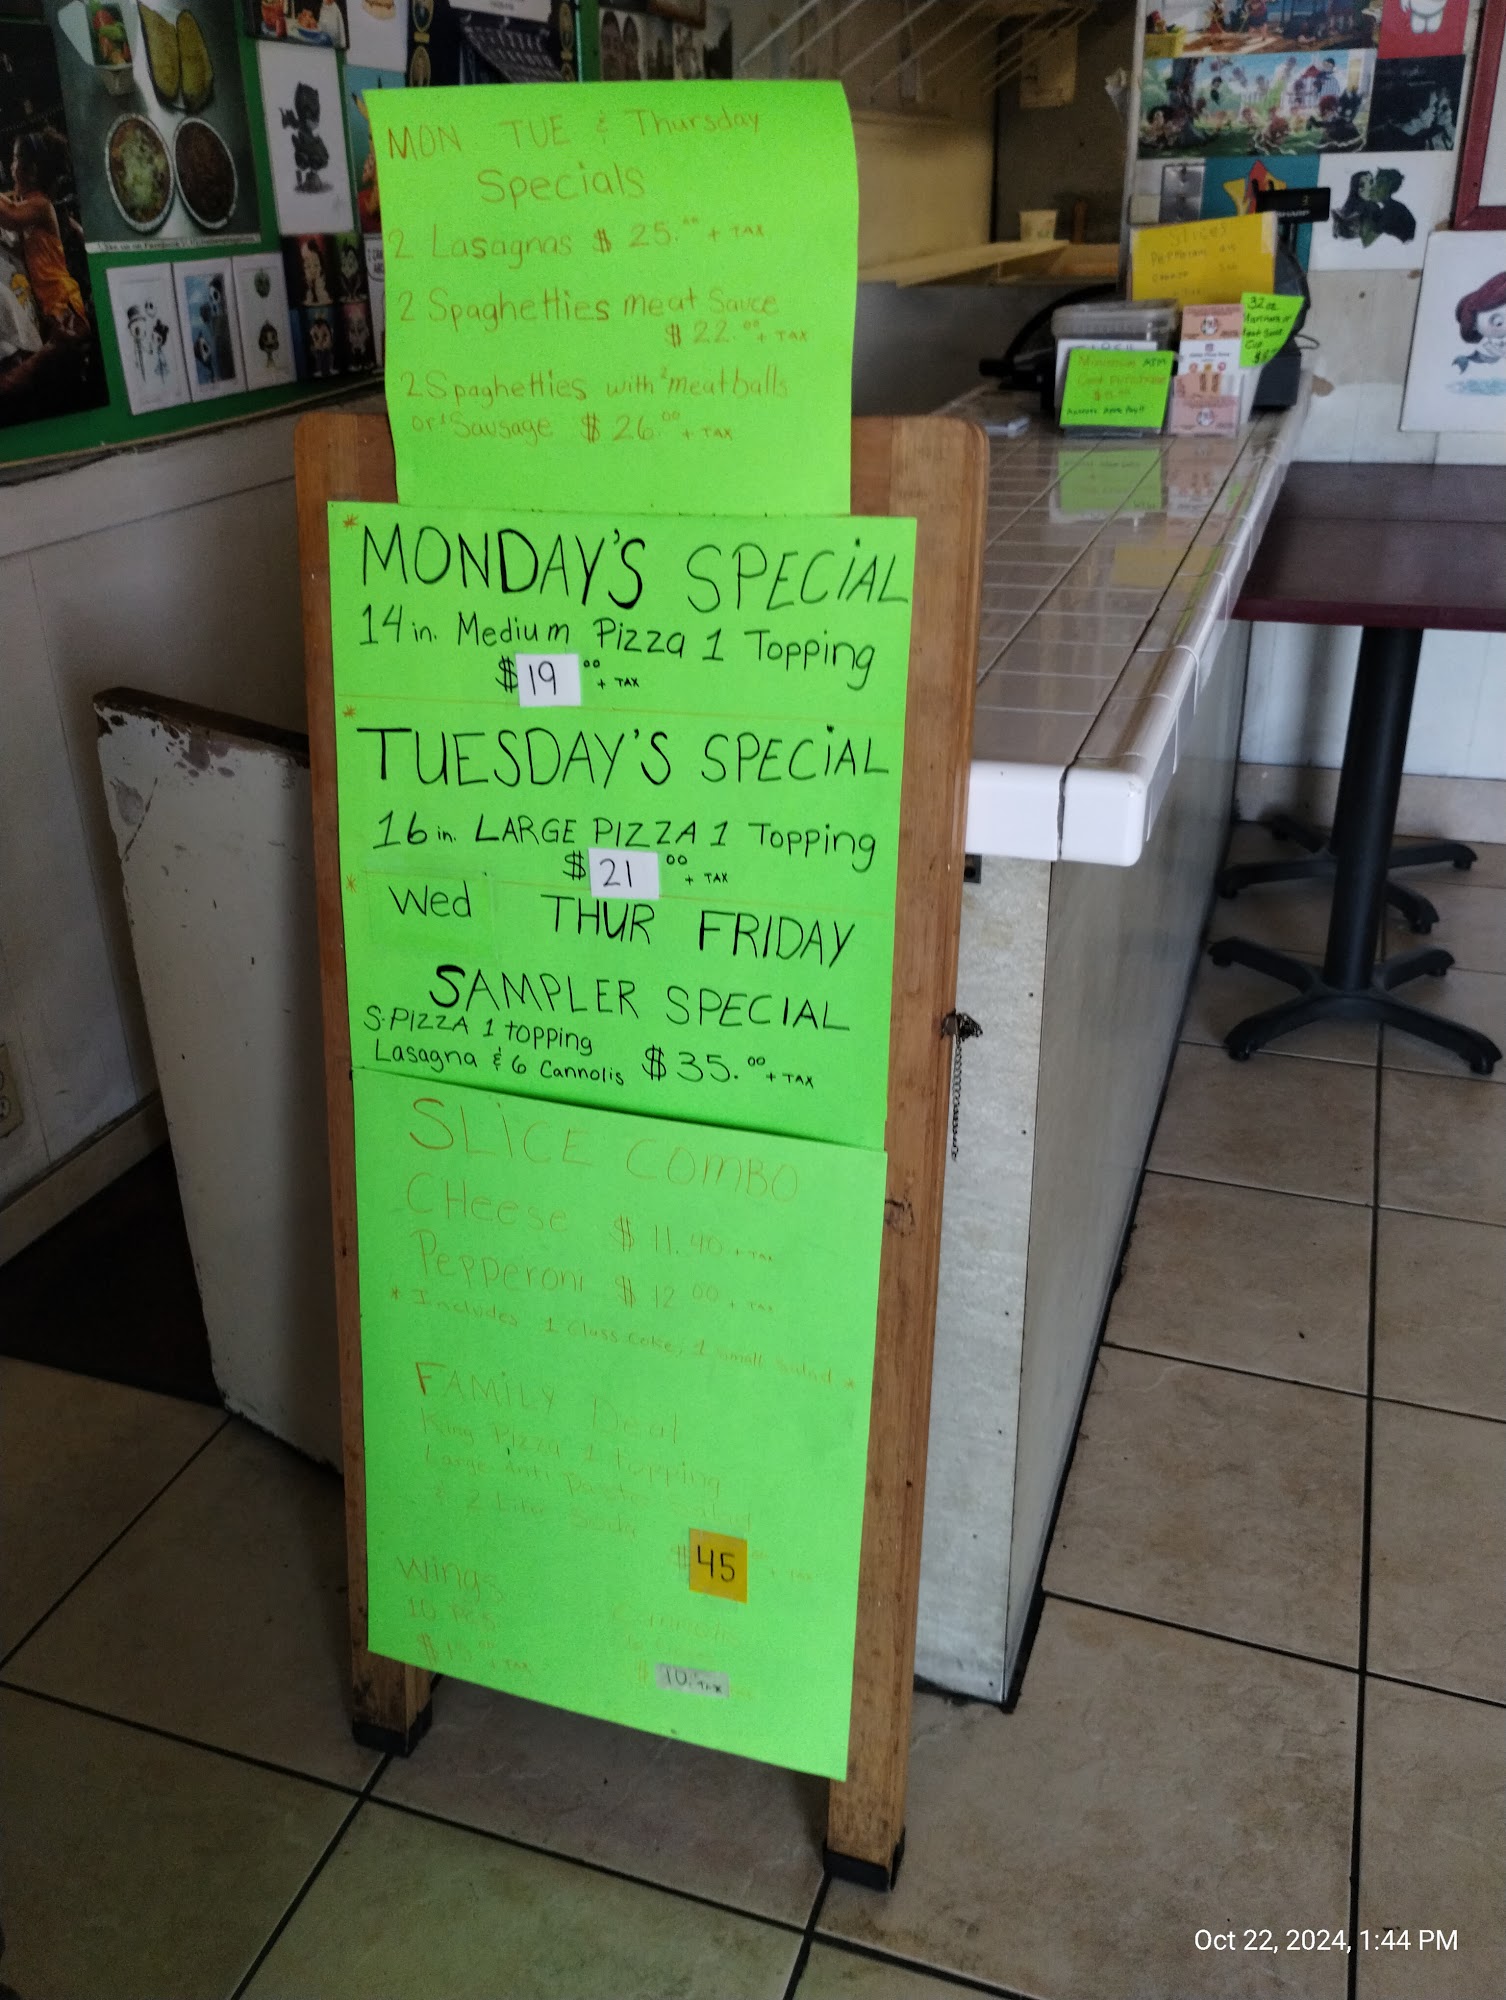 MON TUE & Thursday
Specials
2 Lasagnas $ 25.00 + TAX
2 Spaghetties meat Sauce
$ 22.00 + TAX
2 Spaghetties with 2 meatballs
or 1 Sausage $ 26.00 + TAX
* MONDAY'S SPECiAL
14 in. Medium Pizza 1 Topping
$ 19 00 + TAX
* TUESDAY'S SPECiAL
16 in. LARGE PIZZA 1 Topping
$ 21 00 + TAX
* Wed THUR FRIDAY
SAMPLER SPECIAL
S-PIZZA 1 topping
Lasagna & 6 Cannolis $ 35.00 + TAX
SLiCE COMBO
CHeese $ 11.40 + TAX
Pepperoni $ 12 00 + TAX
* Includes 1 Glass Coke, 1 small Salad *
FAMiLY Deal
King Pizza 1 topping
Large Anti Pasto Salad
& 2 Liter Soda
$ 45
Wings
10 PCS
+ TAX
Cannolis
$ 10. + TAX
Slices
Pepperoni
Cheese
32 oz
Marinara or
Meat Sauce
Cup
Minimum ATM
Card Purchase
SHARP
Oct 22, 2024, 1:44 PM